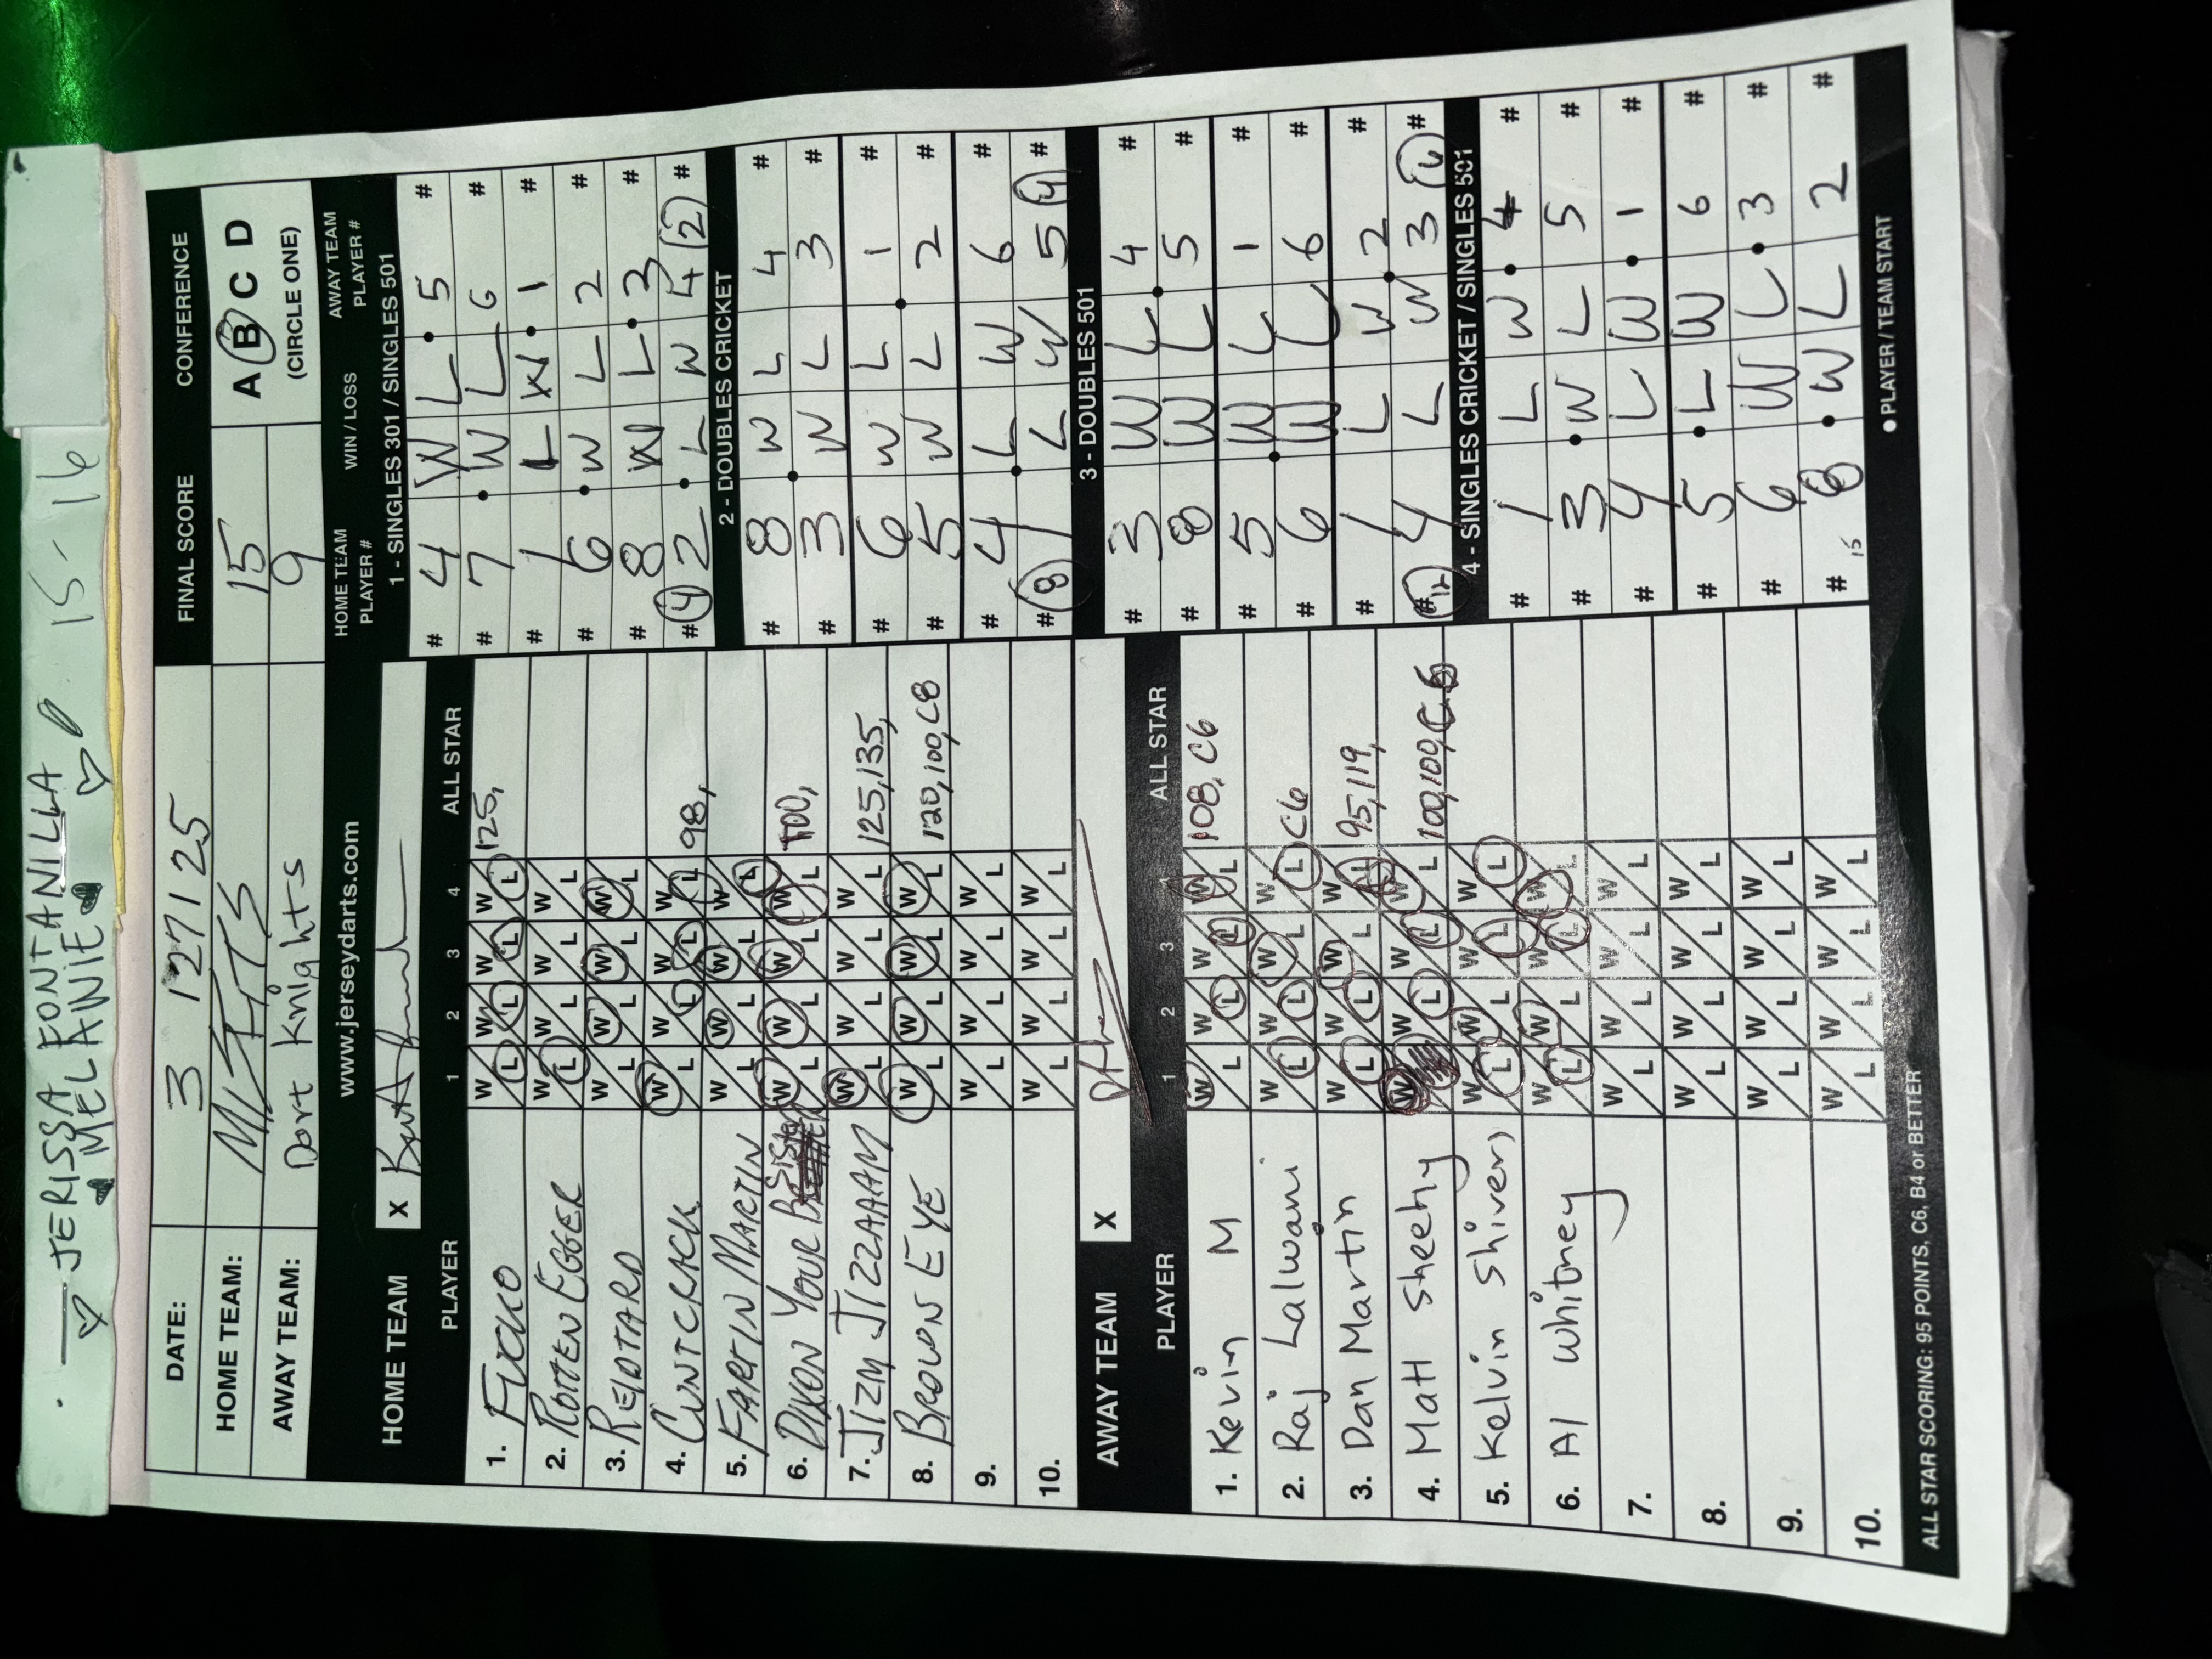 JERISSA FONTANILLA
MELANIE 15-16
DATE: 3 127125 FINAL SCORE CONFERENCE
HOME TEAM: MLFTTS 15 A B C D
AWAY TEAM: Dart Knights 9 (CIRCLE ONE)
www.jerseydarts.com
HOME TEAM X
PLAYER 1 2 3 4 ALL STAR
1. FUCKO W L W L W L W L 125,
2. ROTTEN EGGER W L W L W L W L
3. REJDTARD W L W L W L W L
4. CUNTCRACK W L W L W L W L 98,
5. FARTIN MARTIN W L W L W L W L
6. DIXON YOUR Sister W L W L W L W L 100,
7. JIZM JIZZAAAM W L W L W L W L 125,135,
8. BROWN EYE W L W L W L W L 120,100,C8
9. W L W L W L W L
10. W L W L W L W L
AWAY TEAM X
PLAYER 1 2 3 4 ALL STAR
1. Kevin M W L W L W L W L 108, C6
2. Raj Lalwani W L W L W L W L C6
3. Dan Martin W L W L W L W L 95,119,
4. Matt Sheehy W L W L W L W L 100,100,
5. Kelvin Shivers W L W L W L W L
6. Al Whitney W L W L W L W L
7. W L W L W L W L
8. W L W L W L W L
9. W L W L W L W L
10. W L W L W L W L
HOME TEAM PLAYER # WIN / LOSS AWAY TEAM PLAYER #
1 - SINGLES 301 / SINGLES 501
# 4 W L 5 #
# 7 W L 6 #
# 1 L W 1 #
# 6 W L 2 #
# 8 W L 3 #
# 4 2 L W 4 2 #
2 - DOUBLES CRICKET
# 8 W L 4 #
# 3 W L 3 #
# 6 W L 1 #
# 5 W L 2 #
# 4 L W 6 #
# 8 1 L W 5 4 #
3 - DOUBLES 501
# 3 W L 4 #
# 8 W L 5 #
# 5 W L 1 #
# 6 W L 6 #
# 1 L W 2 #
# 12 4 L W 3 6 #
4 - SINGLES CRICKET / SINGLES 501
# 1 L W 4 #
# 3 W L 5 #
# 4 L W 1 #
# 5 L W 6 #
# 6 W L 3 #
# 15 8 W L 2 #
ALL STAR SCORING: 95 POINTS, C6, B4 or BETTER
● PLAYER / TEAM START